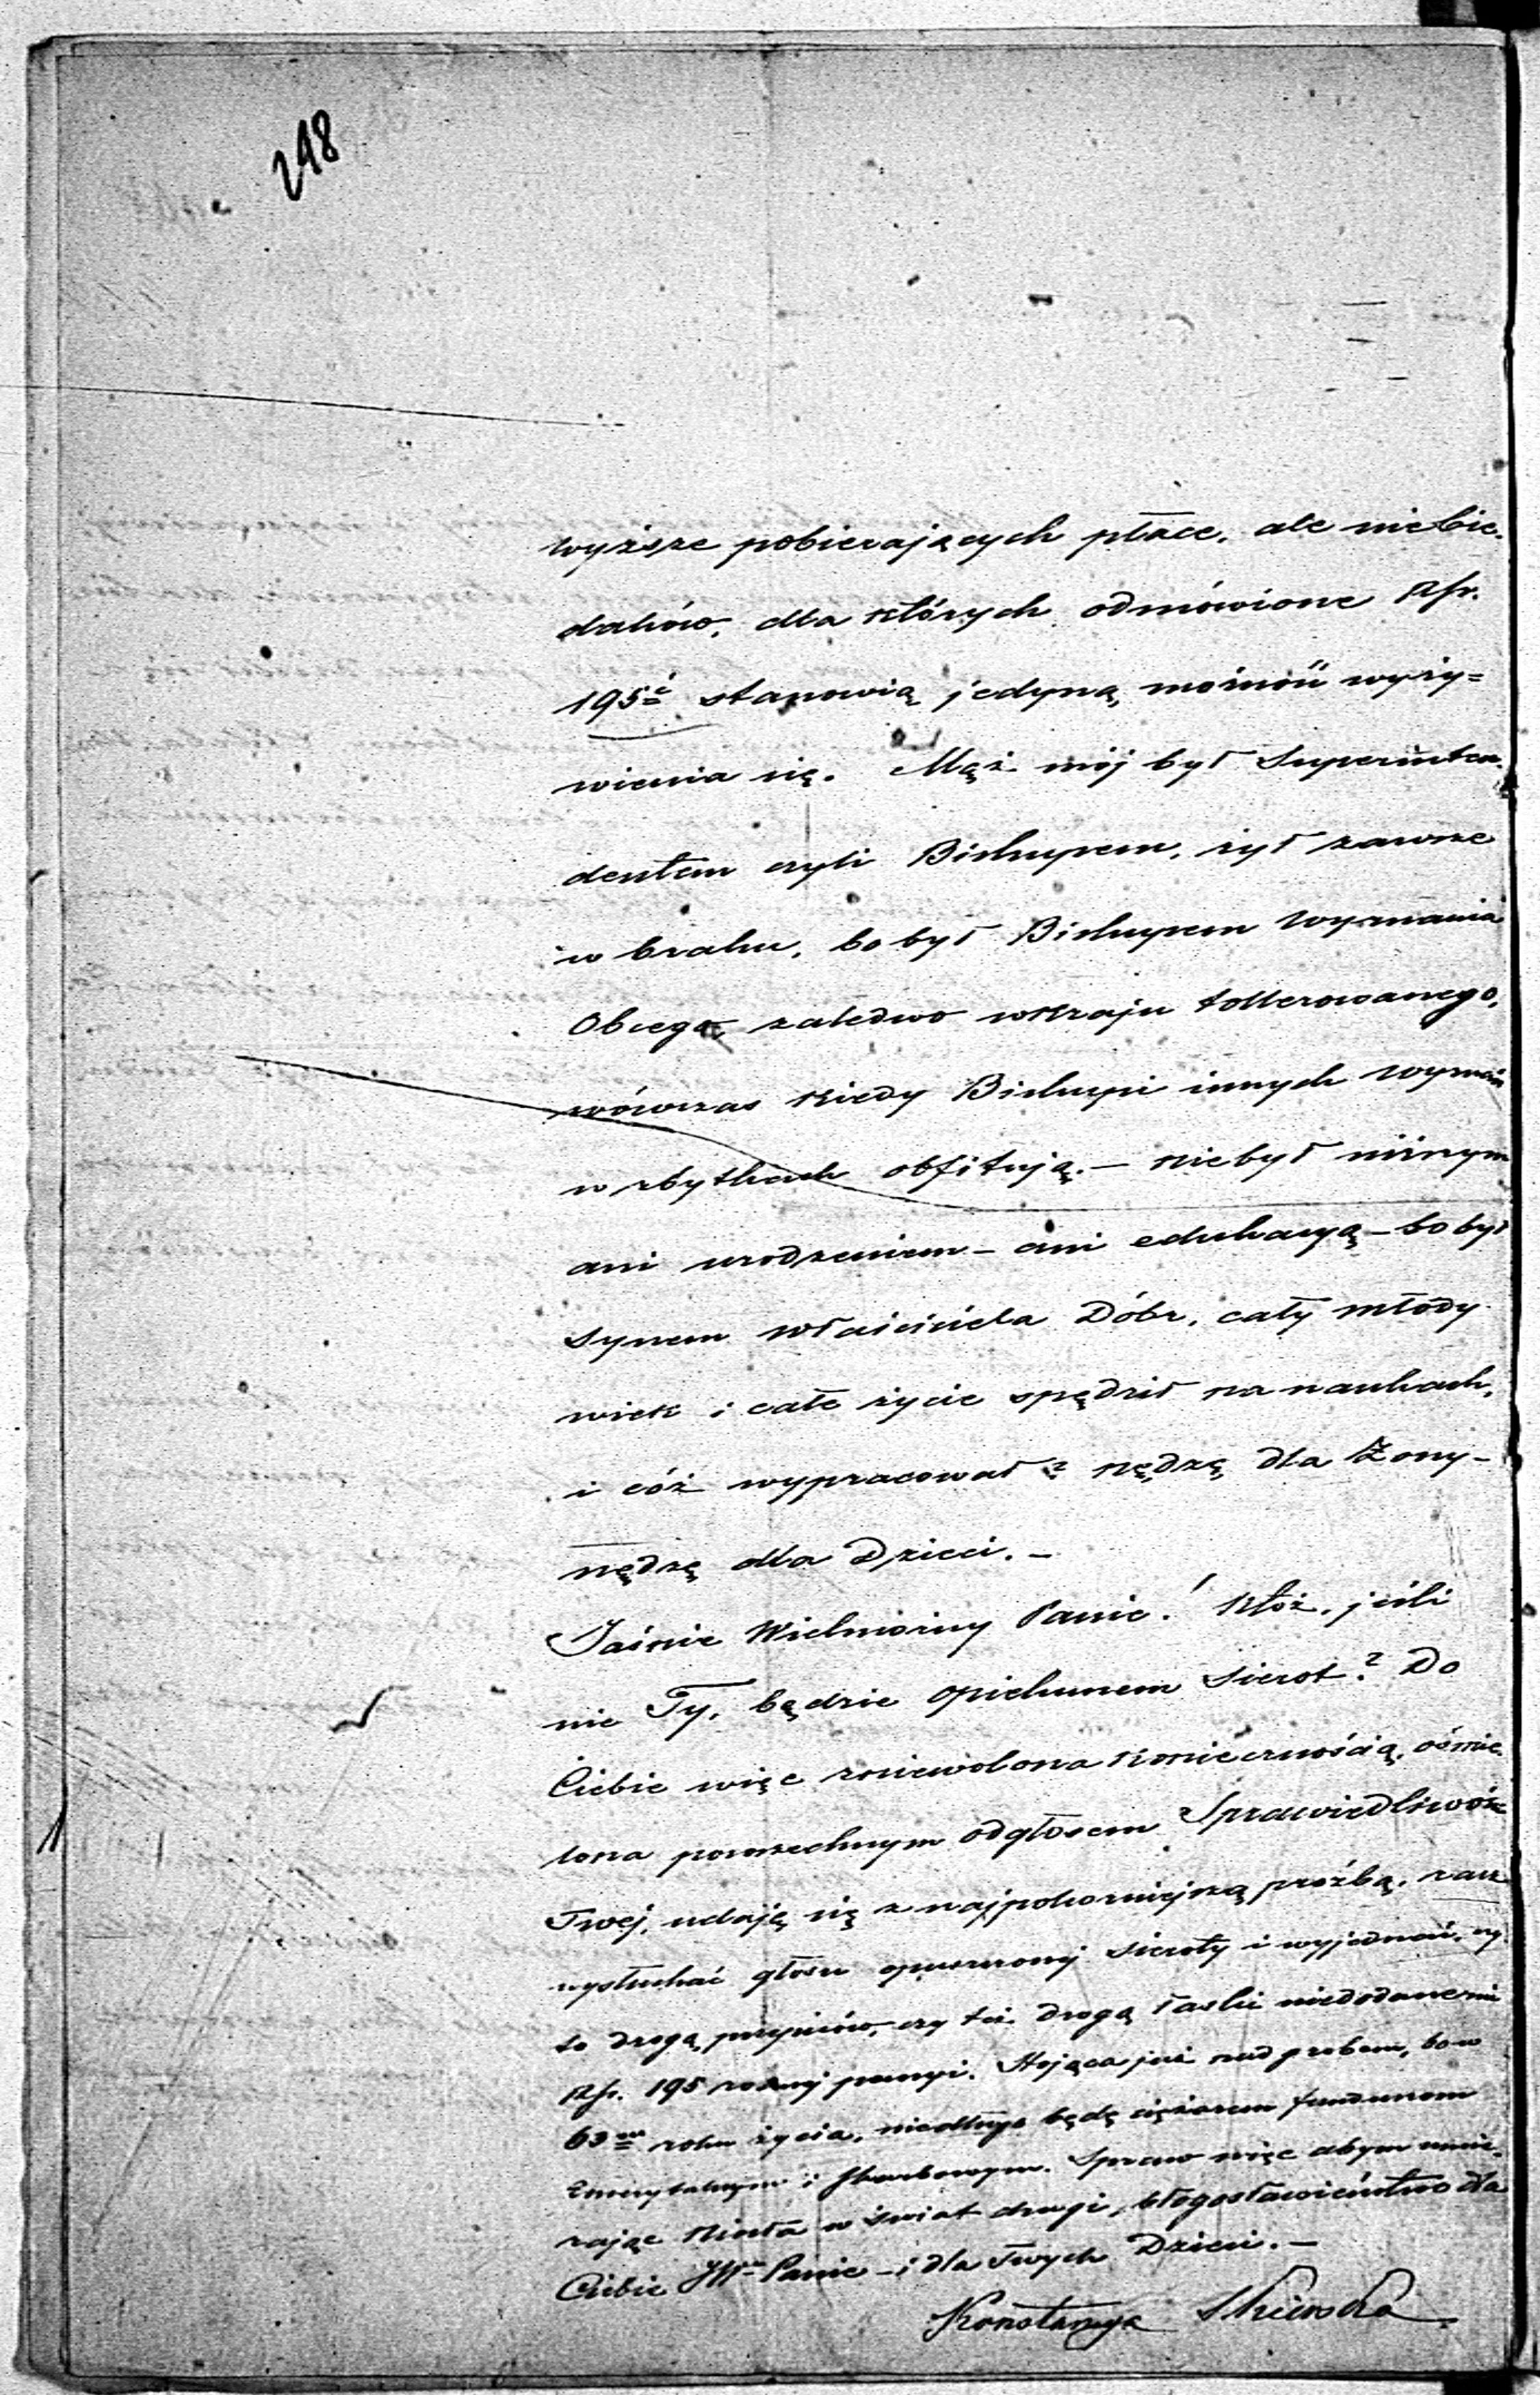 248
wyższe pobierających płace, ale nie bie-
daków, dla których odmówione Rsr.
195 stanowią jedyną możność wyży=
wienia się. Mąż mój był Superinten-
dentem czyli Biskupem, żył zawsze
w braku, bo był Biskupem Wyznania
Obcego, zaledwo w kraju tollerowanego,
wówczas kiedy Biskupi innych wyznań
w zbytkach obfitują. — nie był niższym
ani urodzeniem — ani edukacyą — bo był
Synem właściciela Dóbr, cały młody
wiek i całe życie spędził na naukach,
i cóż wypracował? nędzę dla Żony —
nędzę dla Dzieci. —
Jaśnie Wielmożny Panie! Któż, jeśli
nie Ty, będzie opiekunem Sierot? Do
Ciebie więc zniewolona koniecznością, ośmie-
lona powszechnym odgłosem Sprawiedliwości
Twej, udaję się z najpokorniejszą prośbą, racz
wysłuchać głosu opuszczonej Sieroty i wyjednać, czy
to drogą, czy też drogą łaski niedodane mi
Rsr. 195 rocznej pensyi. Stojąca już nad grobem, bo w
63 roku życia, niedługo będę ciężarem funduszom
Emerytalnym i Skarbowym. Spraw więc abym umie-
rając niosła w świat drugi, błogosławieństwo dla
Ciebie JW Panie — i dla Twych Dzieci. —
Konstancya